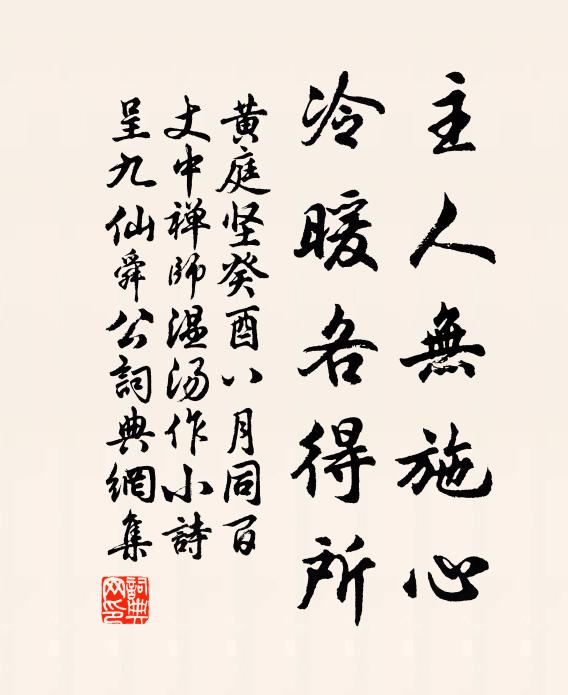 主人無施心
冷暖各得所
黄庭坚癸酉八月同百
丈中禅師湿汤作小詩
呈九仙舜公詞典網集
詞典网印